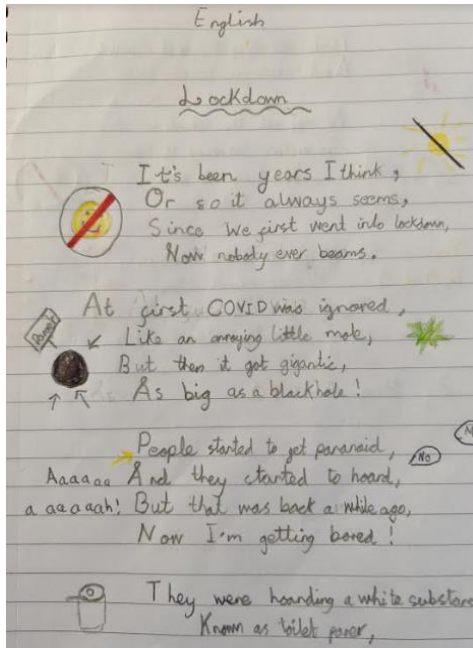 English
Lockdown
It's been years I think,
Or so it always seems,
Since we first went into lockdown,
Now nobody ever beams.
At first COVID was ignored,
Like an annoying little mole,
But then it got gigantic,
As big as a blackhole!
People started to get paranoid,
No
Aaaaaa And they started to hoard,
a aaaaah! But that was back a while ago,
Now I'm getting bored!
They were hoarding a white substance
Known as toilet paper,